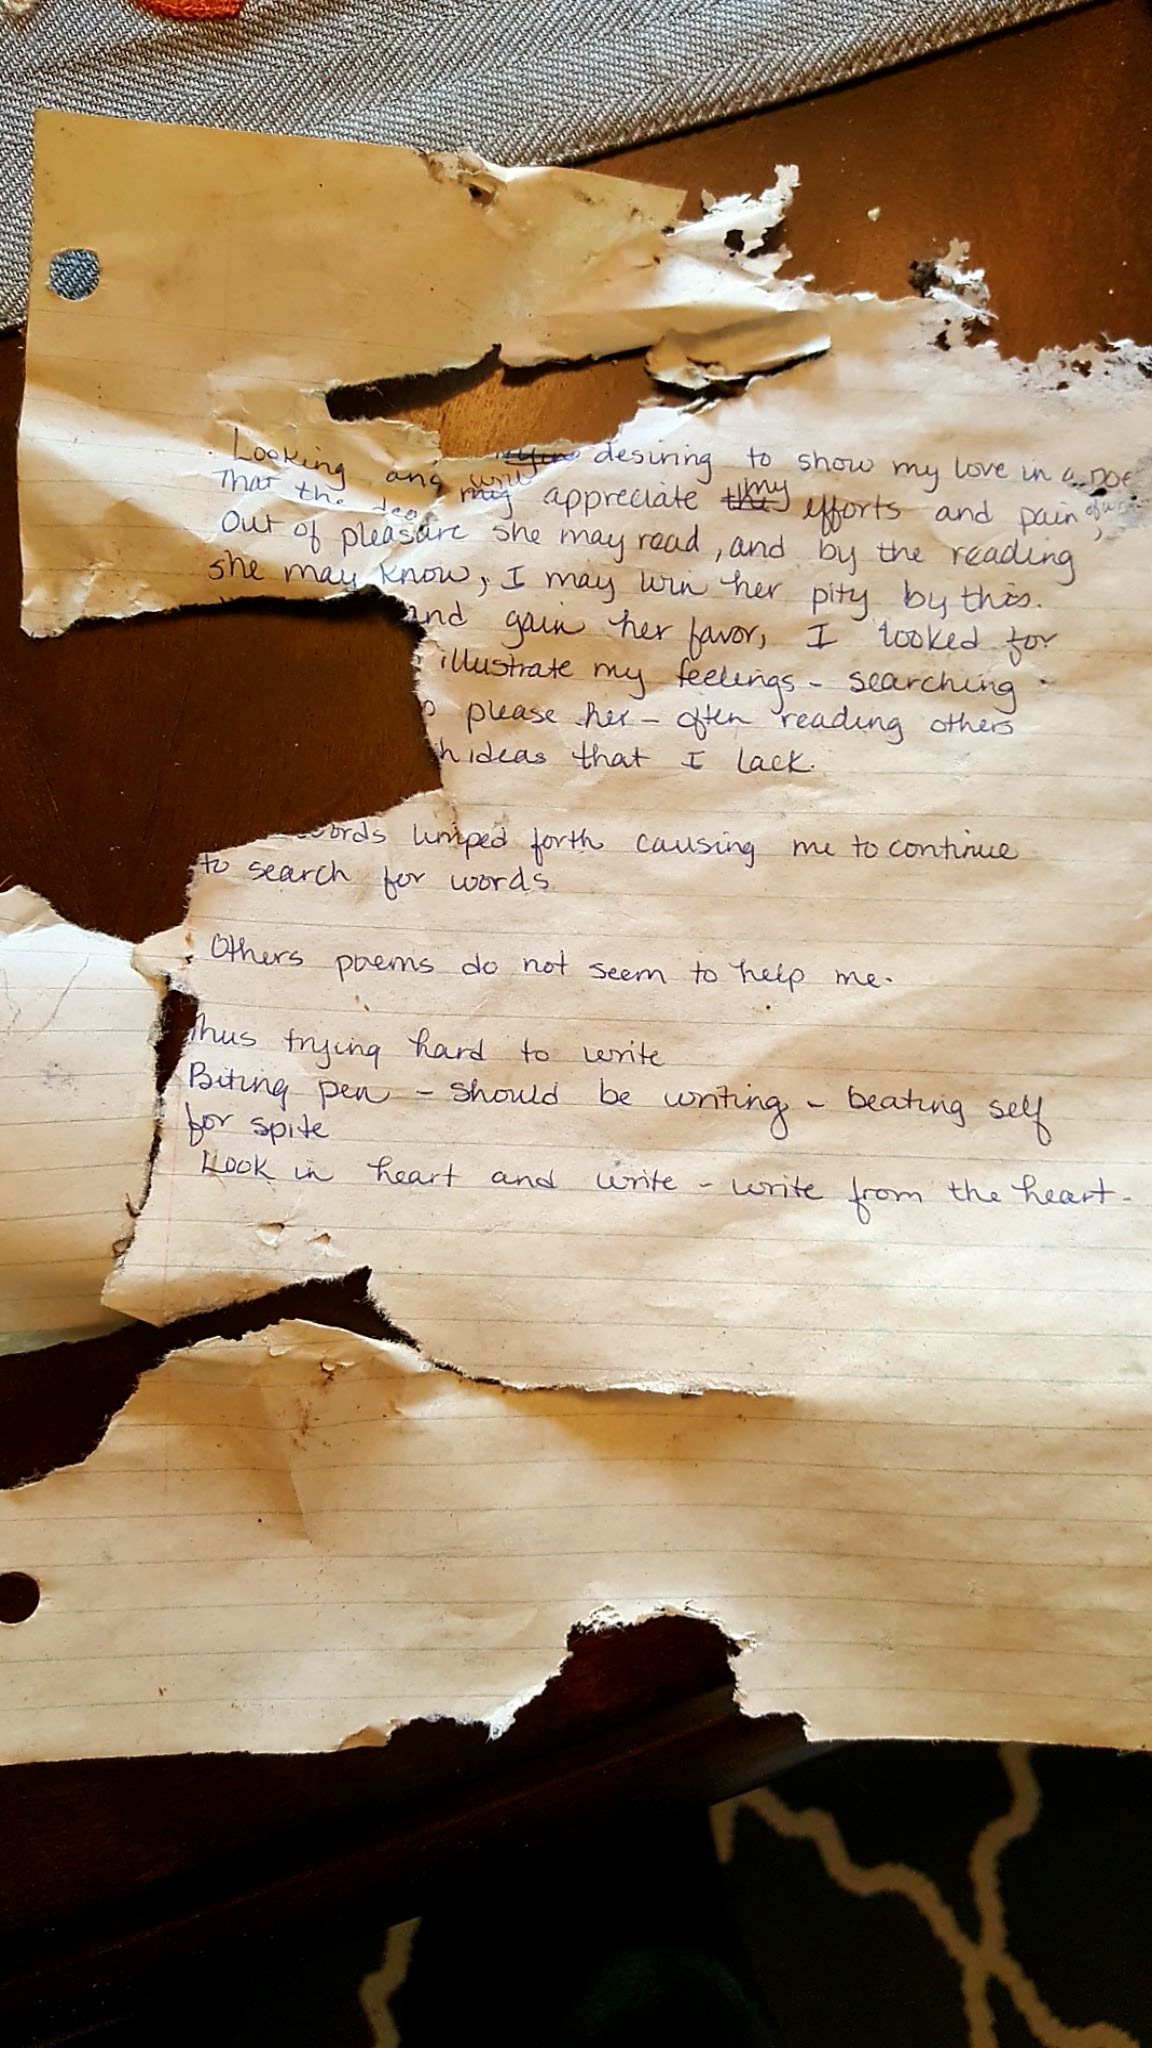 Looking and desiring to show my love in a poe
That the dea will appreciate my efforts and pain
Out of pleasure she may read, and by the reading
she may know, I may win her pity by this.
and gain her favor, I looked for
illustrate my feelings - searching
please her - often reading others
ideas that I lack.
words limped forth causing me to continue
to search for words
Others poems do not seem to help me.
Thus trying hard to write
Biting pen - should be writing - beating self
for spite
Look in heart and write - write from the heart -